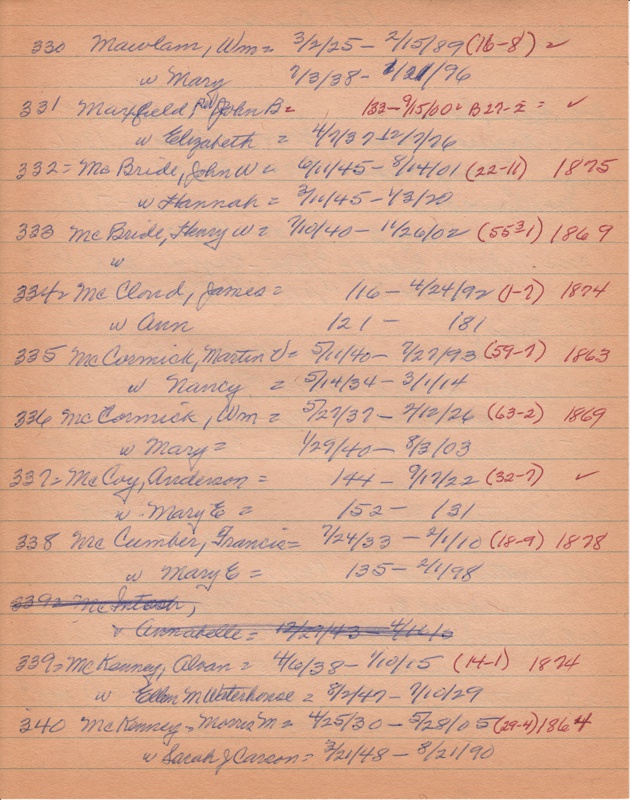 330 Mawlam, Wm = 3/2/25 - 2/15/89 (16-8) ✓
w Mary 7/3/38 - /96
331 Maxfield, John B = 133 - 9/15/60 = B27-2 = ✓
w Elizabeth = 4/7/37 - 12/7/76
332 = McBride, John W = 6/11/45 - 8/14/01 (22-11) 1875
w Hannah = 3/11/45 - 1/3/20
333 McBride, Henry W = 7/10/40 - 11/26/02 (55-31) 1869
w
334 = McCloud, James = /16 - 4/24/92 (1-7) 1874
w Ann 121 - 181
335 McCormick, Martin V = 5/11/40 - 7/27/93 (59-7) 1863
w Nancy = 5/14/34 - 3/1/14
336 McCormick, Wm = 5/27/37 - 2/12/26 (63-2) 1869
w Mary = 1/29/40 - 8/3/03
337 = McCoy, Anderson = 144 - 9/17/22 (32-7) ✓
w Mary E = 152 - 131
338 McCumber, Francis = 7/24/33 - 2/1/10 (18-9) 1878
w Mary E = 135 - 2/1/98
339 = McIntosh,
Annabelle = 12/27/43 -
339 = McKenney, Alvan = 4/6/38 - 1/10/15 (14-1) 1874
w Ellen M Waterhouse = 8/2/47 - 7/10/29
340 McKenney - Morris M = 4/25/30 - 5/28/05 (29-4) 1864
w Sarah J Carson = 3/21/48 - 8/21/90